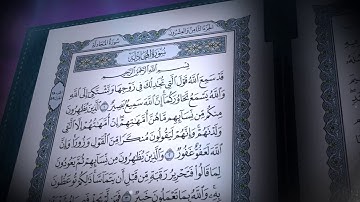 سورة المجادلة
الجزء الثامن والعشرون
سورة المجادلة
بسم الله الرحمن الرحيم
قد سمع الله قول التي تجادلك في زوجها وتشتكي إلى الله
والله يسمع تحاوركما إن الله سميع بصير ١ الذين يظاهرون
منكم من نسائهم ما هن أمهاتهم إن أمهاتهم إلا الـي
ولدنهم وإنهم ليقولون منكرا من القول وزورا وإن
الله لعفو غفور ٢ والذين يظاهرون من نسائهم ثم يعودون
لما قالوا فتحرير رقبة من قبل أن يتماسا ذلكم توعظون
به والله بما تعملون خبير ٣